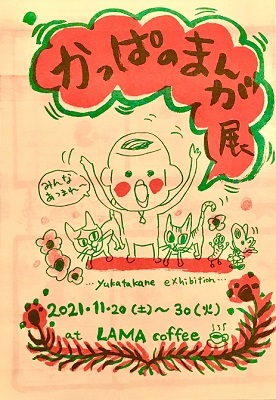 かっぱのまんが
展
みんな
あつまれ
...yukatakane exhibition...
2021.11.20(土)〜30(火)
at LAMA coffee